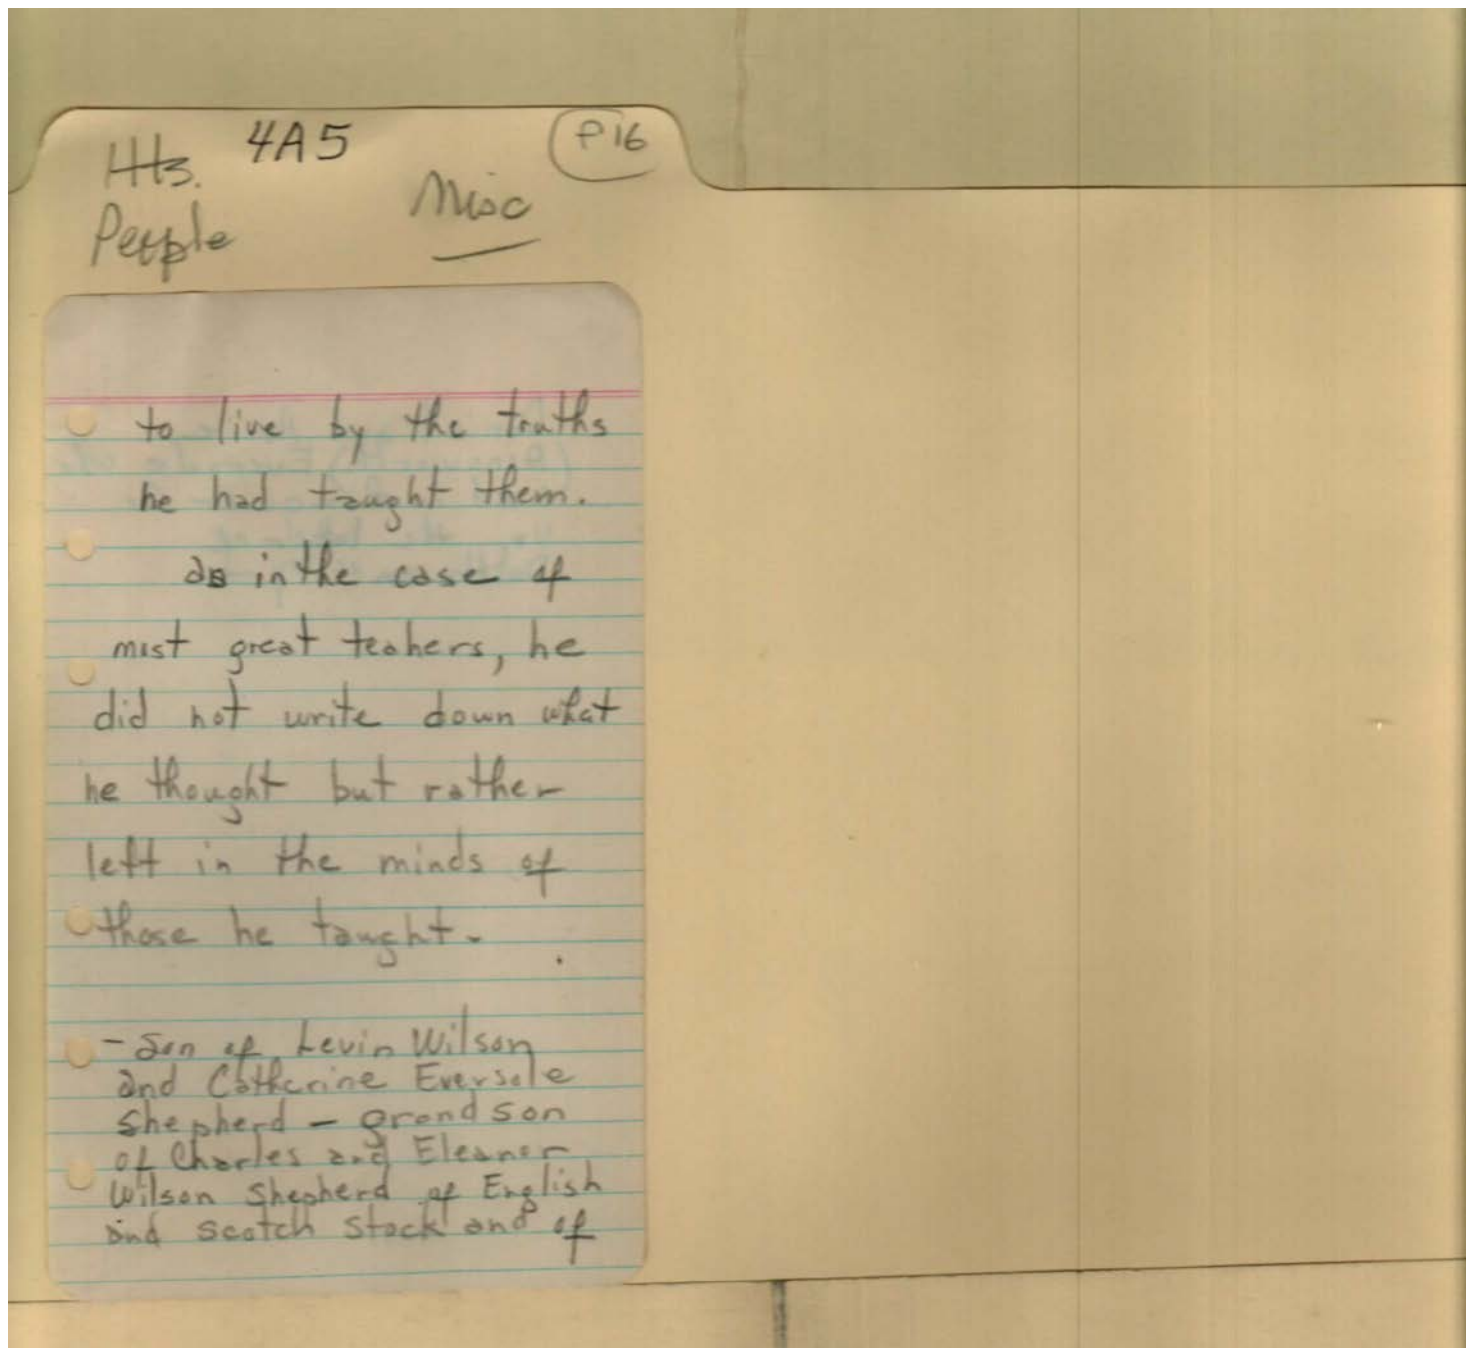 4A5
P16
Hts.
Misc
People
to live by the truths
he had taught them.
as in the case of
most great teahers, he
did not write down what
he thought but rather
left in the minds of
those he taught.
- Son of Levin Wilson
and Catherine Eversole
Shepherd - grandson
of Charles and Eleanor
Wilson Shepherd of English
and Scotch Stock and of